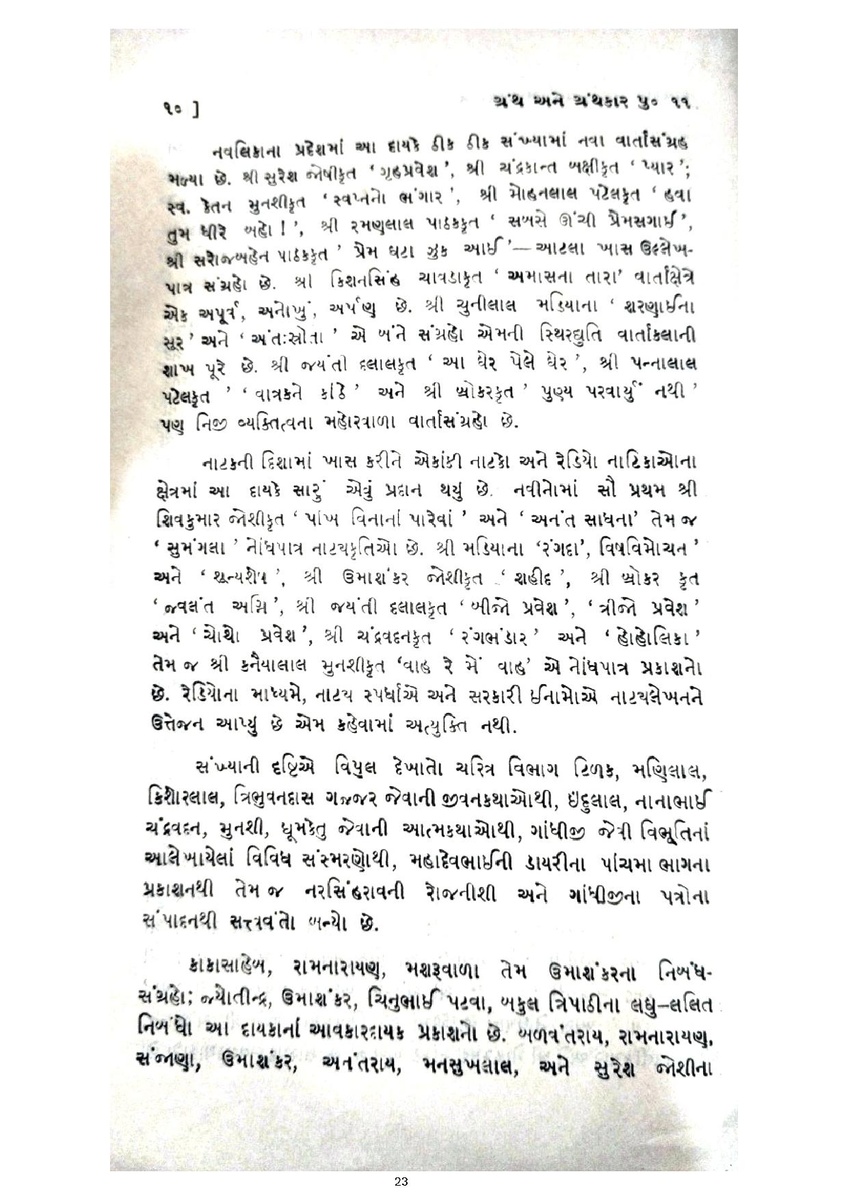 ૧૦ ]
ગ્રંથ અને ગ્રંથકાર પુ૦ ૧૧
નવલિકાના પ્રદેશમાં આ દાયકે ઠીક ઠીક સંખ્યામાં નવા વાર્તાસંગ્રહ
મળ્યા છે. શ્રી સુરેશ જોષીકૃત ‘ ગૃહપ્રવેશ ’, શ્રી ચંદ્રકાન્ત બક્ષીકૃત ‘ પ્યાર ’;
સ્વ. કેતન મુનશીકૃત ‘ સ્વપ્નનો ભંગાર ’, શ્રી મોહનલાલ પટેલકૃત ‘ હવા
તુમ ધીરે બહો ! ’, શ્રી રમણલાલ પાઠકકૃત ‘ સબસે ઊંચી પ્રેમસગાઈ ’,
શ્રી સરોજબહેન પાઠકકૃત ’ પ્રેમ ઘટા ઝુક આઈ ’—આટલા ખાસ ઉલ્લેખ-
પાત્ર સંગ્રહો છે. શ્રી કિશનસિંહ ચાવડાકૃત ‘ અમાસના તારા’ વાર્તાક્ષેત્રે
એક અપૂર્વ, અનોખું, અર્પણ છે. શ્રી ચુનીલાલ મડિયાના ‘ શરણાઈના
સુર ’ અને ‘ અંતઃસ્રોતા ’ એ બંને સંગ્રહો એમની સ્થિરદ્યુતિ વાર્તાકલાની
શાખ પૂરે છે. શ્રી જયંતી દલાલકૃત ‘ આ ઘેર પેલે ઘેર ’, શ્રી પન્નાલાલ
પટેલકૃત ’ ‘ વાત્રકને કાંઠે ’ અને શ્રી બ્રોકરકૃત ’ પુણ્ય પરવાર્યું નથી ’
પણ નિજી વ્યક્તિત્વના મહોરવાળા વાર્તાસંગ્રહો છે.
નાટકની દિશામાં ખાસ કરીને એકાંકી નાટકો અને રેડિયો નાટિકાઓના
ક્ષેત્રમાં આ દાયકે સારું એવું પ્રદાન થયું છે. નવીનોમાં સૌ પ્રથમ શ્રી
શિવકુમાર જોશીકૃત ‘ પાંખ વિનાનાં પારેવાં ’ અને ‘ અનંત સાધના’ તેમ જ
‘ સુમંગલા ’ નોંધપાત્ર નાટ્યકૃતિઓ છે. શ્રી મડિયાના ‘રંગદા’, વિષવિમોચન’
અને ‘ શૂન્યશેષ ’, શ્રી ઉમાશંકર જોશીકૃત ‘ શહીદ ’, શ્રી બ્રોકર કૃત
‘ જ્વલંત અગ્નિ ’, શ્રી જયંતી દલાલકૃત ‘ બીજો પ્રવેશ ’, ‘ ત્રીજો પ્રવેશ ’
અને ‘ ચોથો પ્રવેશ ’, શ્રી ચંદ્રવદનકૃત ‘ રંગભંડાર ’ અને ‘ હોહોલિકા ’
તેમ જ શ્રી કનૈયાલાલ મુનશીકૃત ‘વાહ રે મેં વાહ’ એ નોંધપાત્ર પ્રકાશનો
છે. રેડિયોના માધ્યમે, નાટ્ય સ્પર્ધાએ અને સરકારી ઈનામોએ નાટ્યલેખનને
ઉત્તેજન આપ્યું છે એમ કહેવામાં અત્યુક્તિ નથી.
સંખ્યાની દૃષ્ટિએ વિપુલ દેખાતો ચરિત્ર વિભાગ ટિળક, મણિલાલ,
કિશોરલાલ, ત્રિભુવનદાસ ગજ્જર જેવાની જીવનકથાઓથી, ઇંદુલાલ, નાનાભાઈ
ચંદ્રવદન, મુનશી, ધૂમકેતુ જેવાની આત્મકથાઓથી, ગાંધીજી જેવી વિભૂતિનાં
આલેખાયેલાં વિવિધ સંસ્મરણોથી, મહાદેવભાઈની ડાયરીના પાંચમા ભાગના
પ્રકાશનથી તેમ જ નરસિંહરાવની રોજનીશી અને ગાંધીજીના પત્રોના
સંપાદનથી સત્ત્વવંતો બન્યો છે.
કાકાસાહેબ, રામનારાયણ, મશરૂવાળા તેમ ઉમાશંકરના નિબંધ-
સંગ્રહો; જ્યોતીન્દ્ર, ઉમાશંકર, ચિનુભાઈ પટવા, બકુલ ત્રિપાઠીના લઘુ–લલિત
નિબંધો આ દાયકાનાં આવકારદાયક પ્રકાશનો છે. બળવંતરાય, રામનારાયણ,
સંજાણા, ઉમાશંકર, અનંતરાય, મનસુખલાલ, અને સુરેશ જોશીના
23